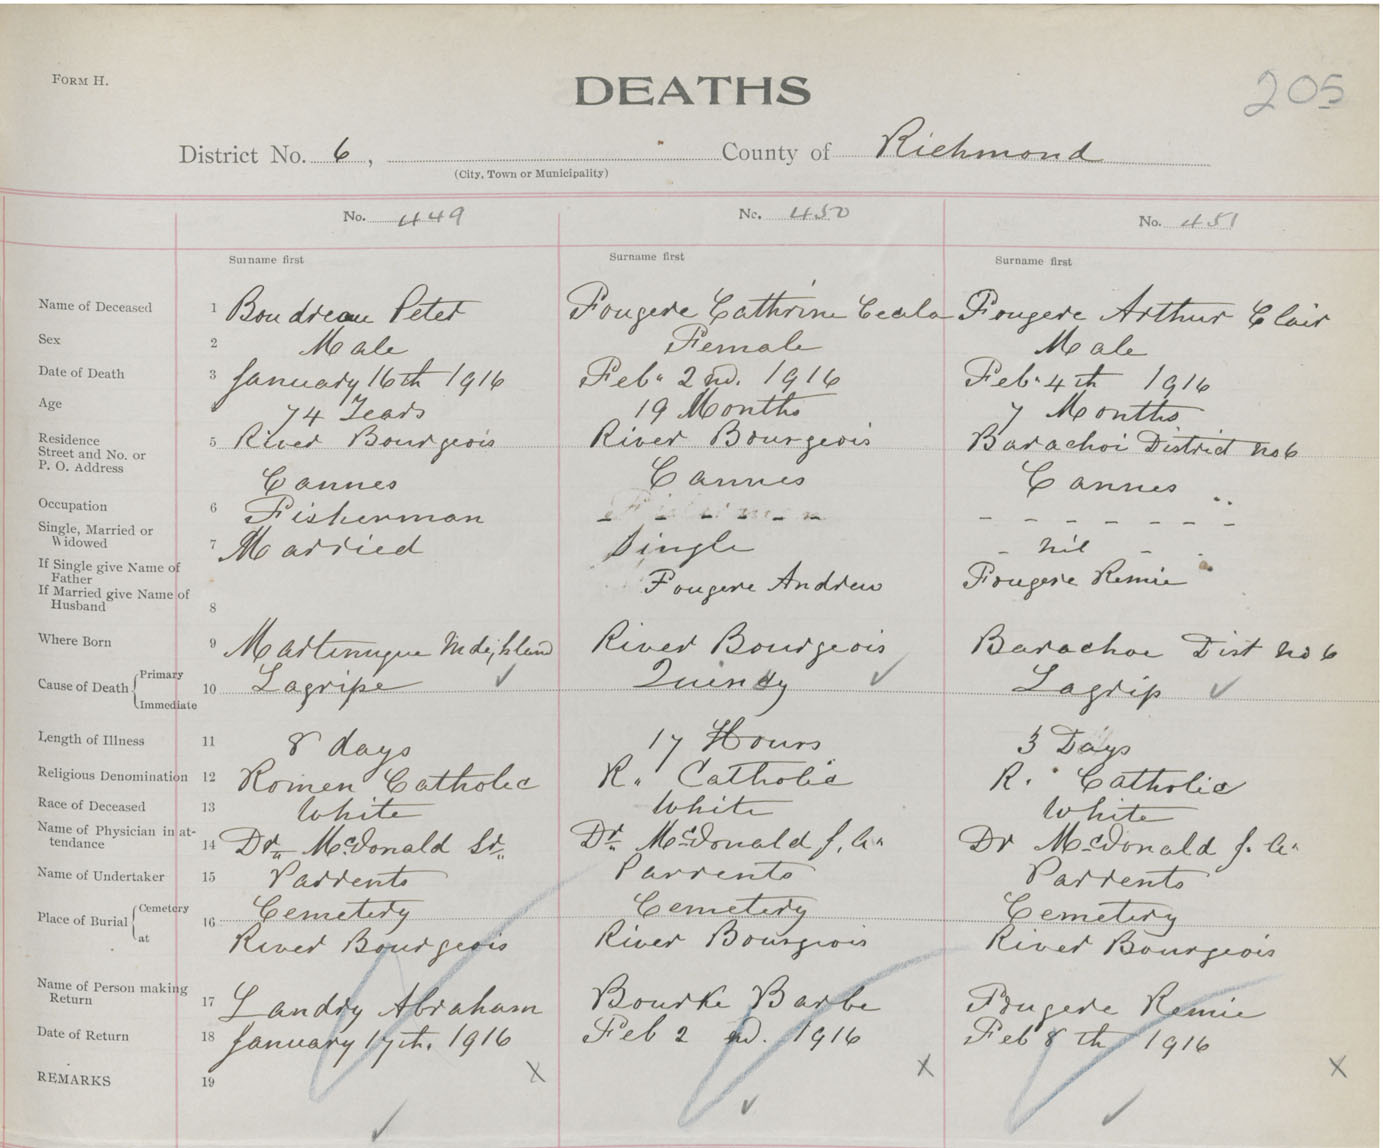 FORM H.
DEATHS
205
District No. 6, County of Richmond
(City, Town or Municipality)
No. 449 No. 450 No. 451
Surname first Surname first Surname first
Name of Deceased 1 Boudreau Peter Fougere Cathrine Ceala Fougere Arthur Clair
Sex 2 Male Female Male
Date of Death 3 January 16th 1916 Feb. 2nd. 1916 Feb. 4th 1916
Age 74 Years 19 Months 7 Months
Residence 5 River Bourgeois River Bourgeois Barachoi District no 6
Street and No. or
P. O. Address Cannes Cannes Cannes
Occupation 6 Fisherman - - - - - - - - - - - - -
Single, Married or
Widowed 7 Married Single - nil - -
If Single give Name of
Father Fougere Andrew Fougere Remie
If Married give Name of
Husband 8
Where Born 9 Martinuque River Bourgeois Barachoe Dist no 6
Cause of Death { Primary
10 Lagripe ✓ Quinsy ✓ Lagrip ✓
Immediate
Length of Illness 11 8 days 17 Hours 3 Days
Religious Denomination 12 Romen Catholec R. Catholic R. Catholic
Race of Deceased 13 White White White
Name of Physician in at-
tendance 14 Dr. McDonald Sr. Dr. McDonald J. A. Dr McDonald J. A.
Name of Undertaker 15 Parrents Parrents Parrents
Place of Burial { Cemetery 16 Cemetery Cemetery Cemetery
at River Bourgeois River Bourgeois River Bourgeois
Name of Person making
Return 17 Landry Abraham Bourke Barbe Fougere Remie
Date of Return 18 January 17th. 1916 Feb 2 nd. 1916 Feb 8th 1916
REMARKS 19 X X X
✓ ✓ ✓